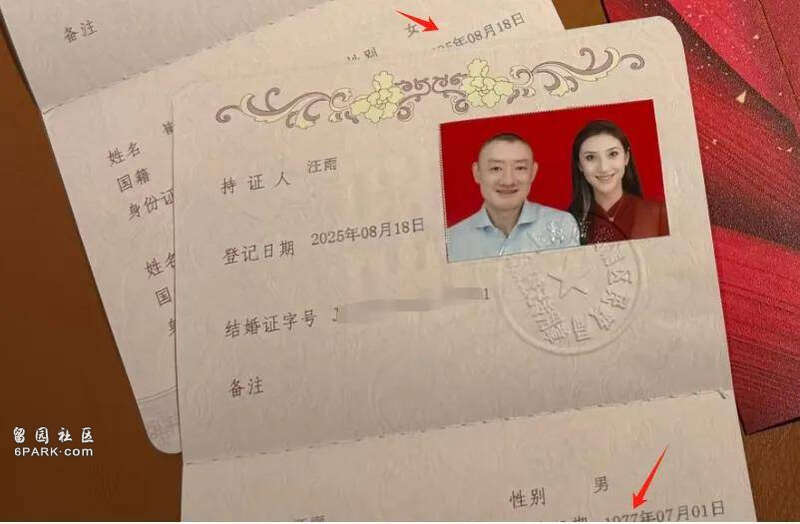 备注
女
性别
25年08月18日
姓名
国籍
身份证
姓名
国
持证人 汪雨
登记日期 2025年08月18日
结婚证字号 J 1
备注
性别 男
1977年07月01日
汪雨
留园社区
6PARK.com